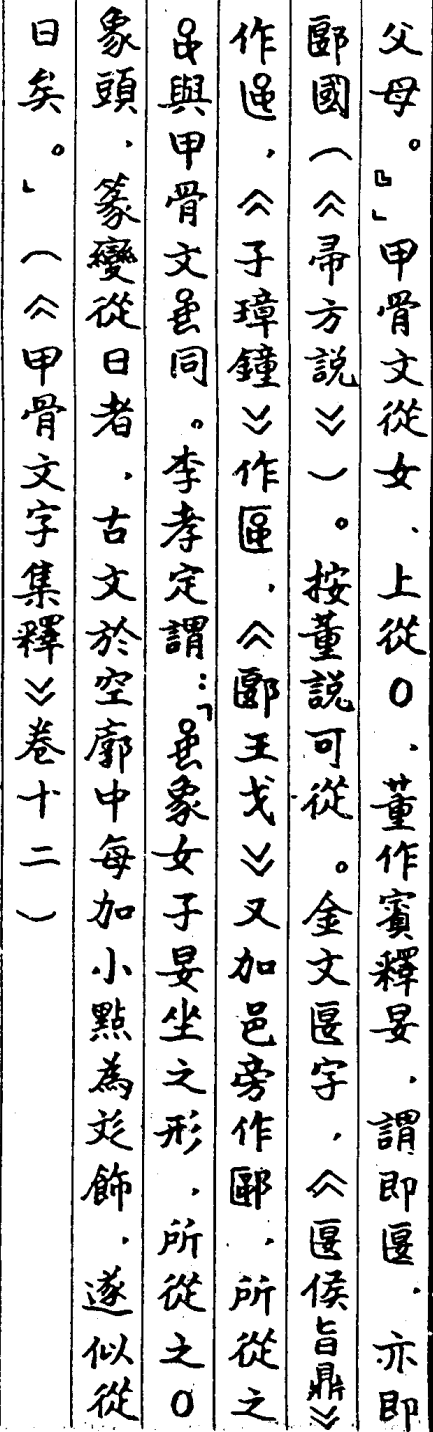 父母。』」甲骨文從女、上從〇、董作賓釋晏，謂即匽，亦即
郾國（《帚方說》）。按董說可從。金文匽字，《匽侯旨鼎》
作，《子璋鐘》作，《郾王戈》又加邑旁作，所從之
與甲骨文同。李孝定謂：「象女子晏坐之形，所從之〇
象頭，篆變從日者，古文於空廓中每加小點為文飾，遂似從
日矣。」（《甲骨文字集釋》卷十二）